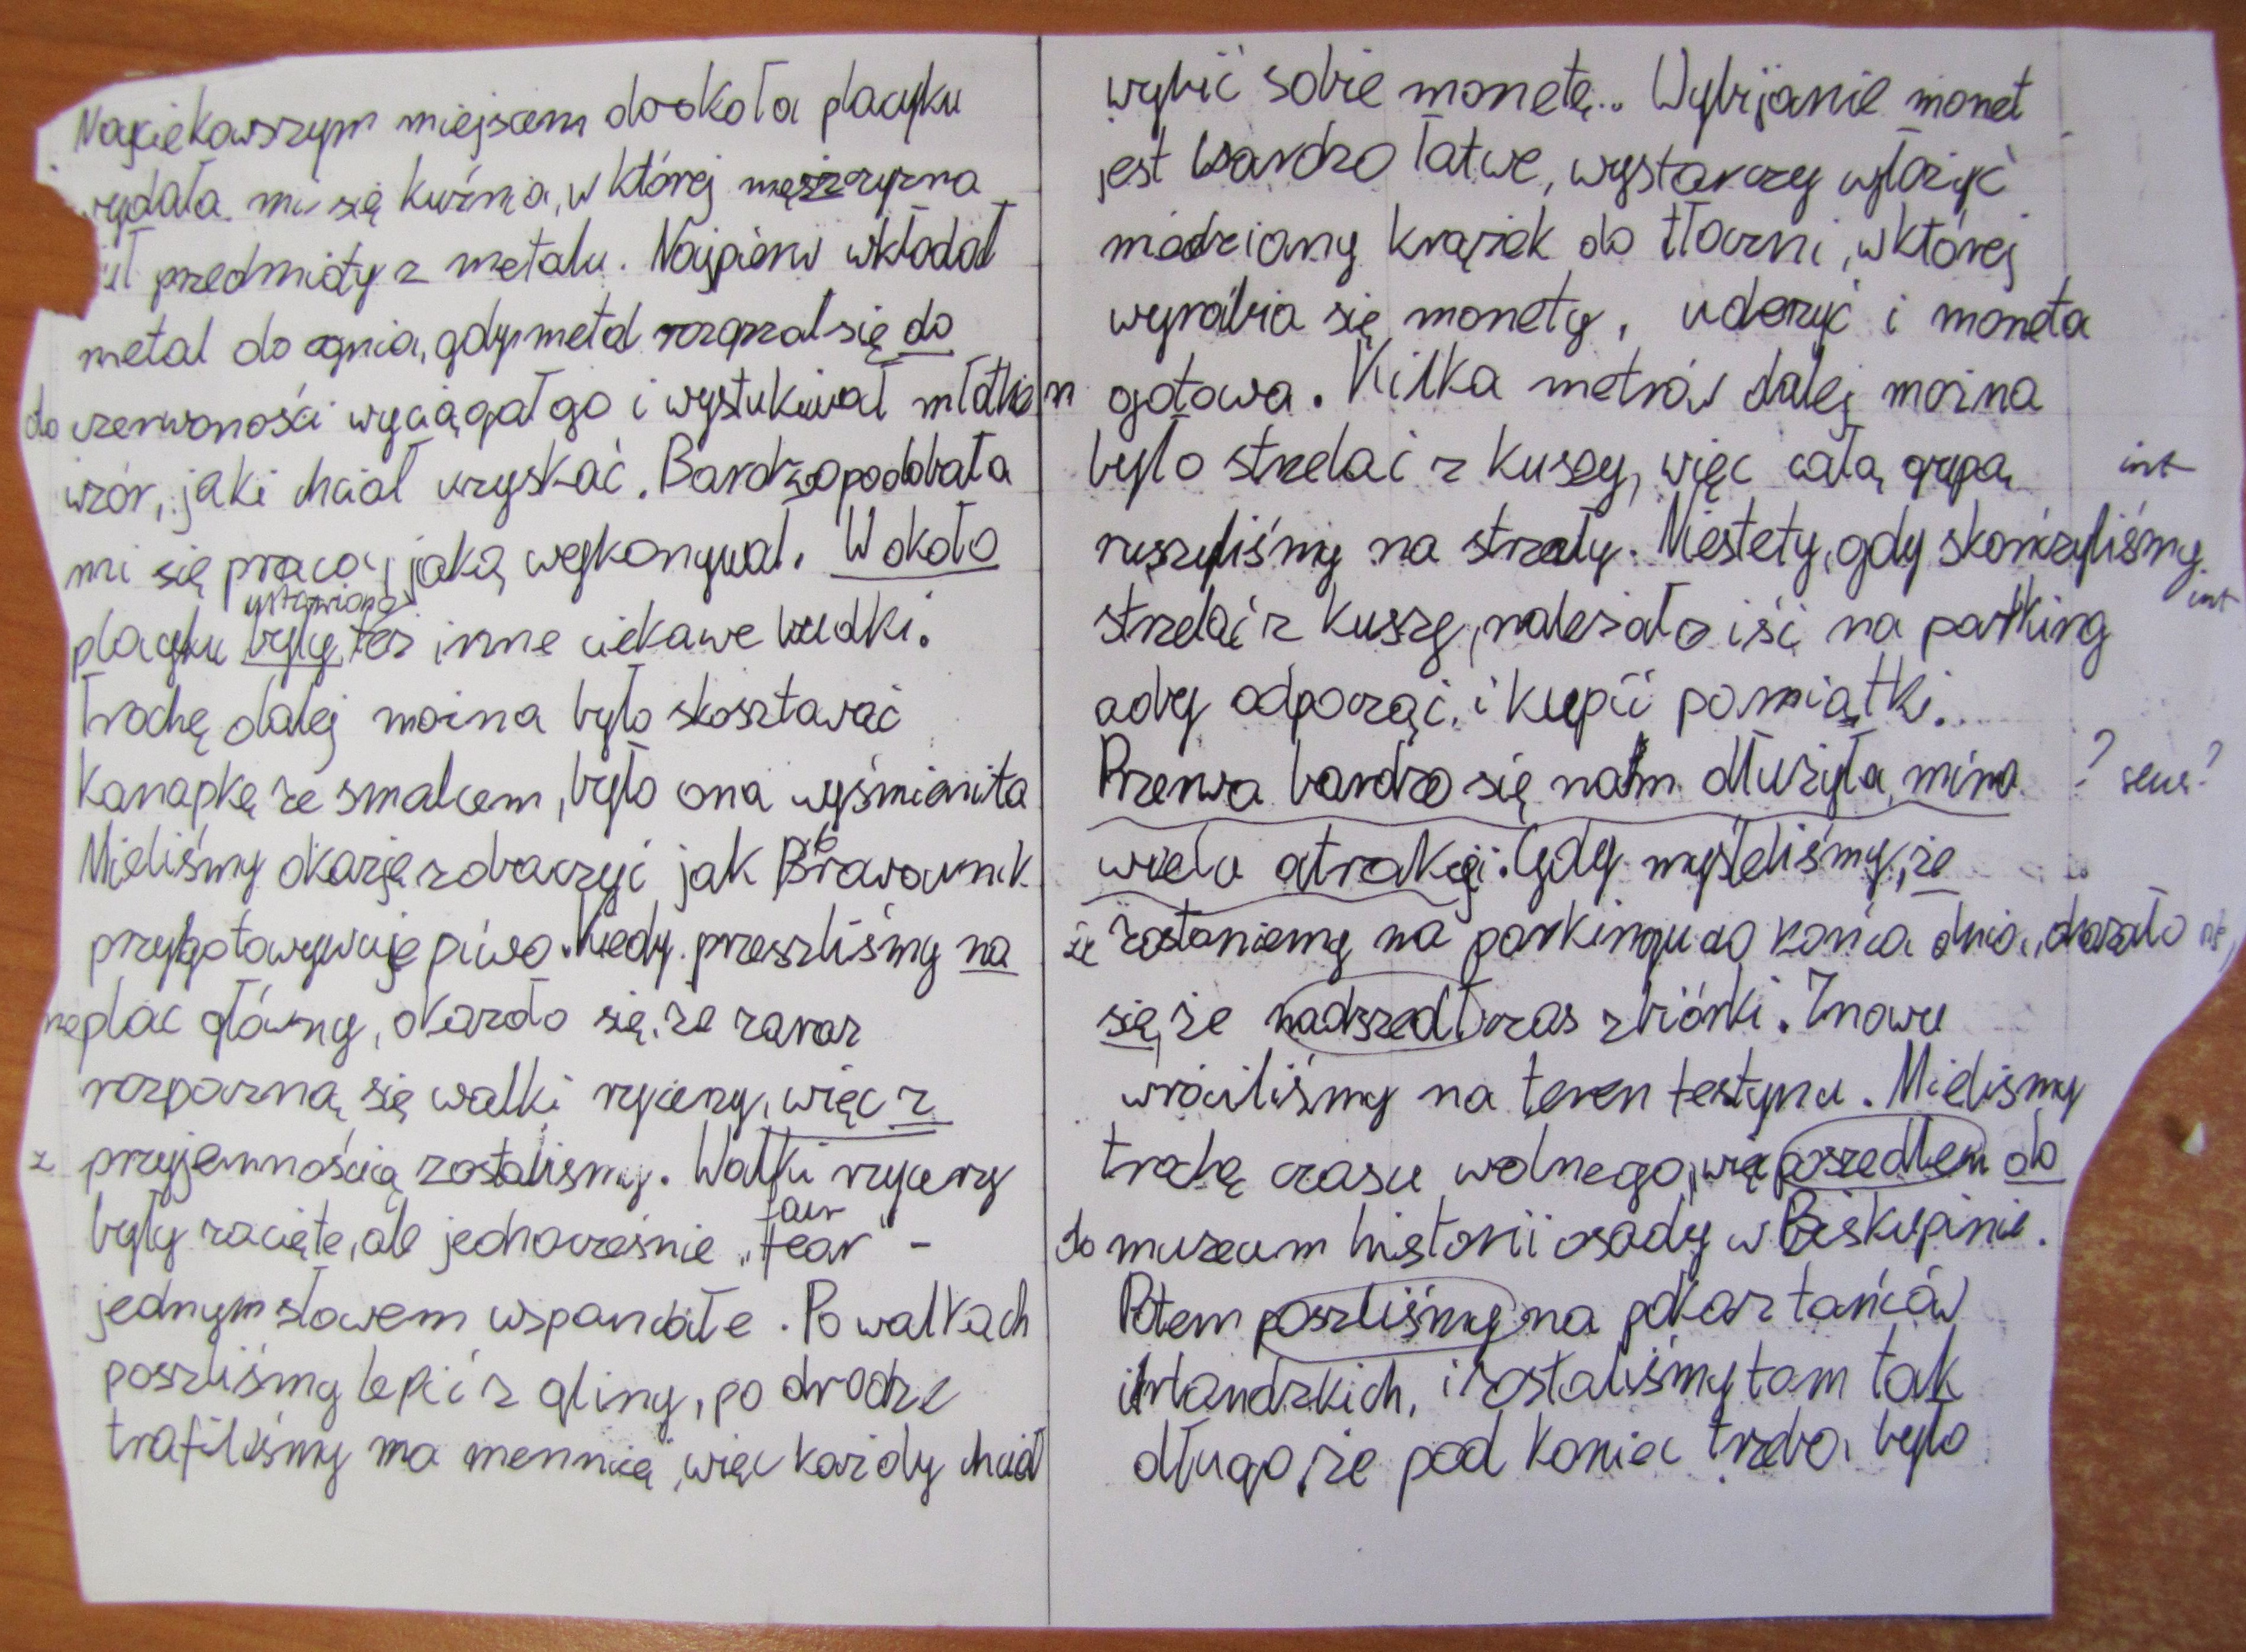 Najciekawszym miejscem dookoła placyku
wydała mi się kuźnia, w której mężczyzna
ił przedmioty z metalu. Najpierw wkładał
metal do ognia, gdy metal rozgrzał się do
do czerwoności wyciągał go i wystukiwał młotkiem
wzór, jaki chciał uzyskać. Bardzo podobała
mi się praca, jaką wykonywał. W około
ustawiono
placyku były też inne ciekawe budki.
Trochę dalej można było skosztować
kanapkę ze smalcem, było ona wyśmienita
Mieliśmy okazję zobaczyć jak Browarnik
przygotowywuje piwo. Kiedy przeszliśmy na
na plac główny, okazało się, że zaraz
rozpoczną się walki rycerzy, więc z
z przyjemnością zostaliśmy. Walki rycerzy
fair
były zacięte, ale jednocześnie „fear" -
jednym słowem wspaniałe. Po walkach
poszliśmy lepić z gliny, po drodze
trafiliśmy na mennicę, więc każdy chciał
wybić sobie monetę.. Wybijanie monet
jest bardzo łatwe, wystarczy włożyć
miedziany krążek do tłoczni, w której
wyrabia się monety, uderzyć i moneta
gotowa. Kilka metrów dalej można
było strzelać z kuszy, więc całą grupą int
ruszyliśmy na strzały. Niestety, gdy skończyliśmy
int
strzelać z kuszy, należało iść na parking
aby odpocząć, i kupić pamiątki.
Przerwa bardzo się nam dłużyła, mimo ? sens?
wielu atrakcji. Gdy myśleliśmy, że
że zostaniemy na parkingu do końca dnia, okazało
się, że nadszedł czas zbiórki. Znowu
wróciliśmy na teren festynu. Mieliśmy
trochę czasu wolnego, więc poszedłem do
do muzeum historii osady w Biskupinie.
Potem poszliśmy na pokaz tańców
irlandzkich, i zostaliśmy tam tak
długo, że pod koniec trzeba było